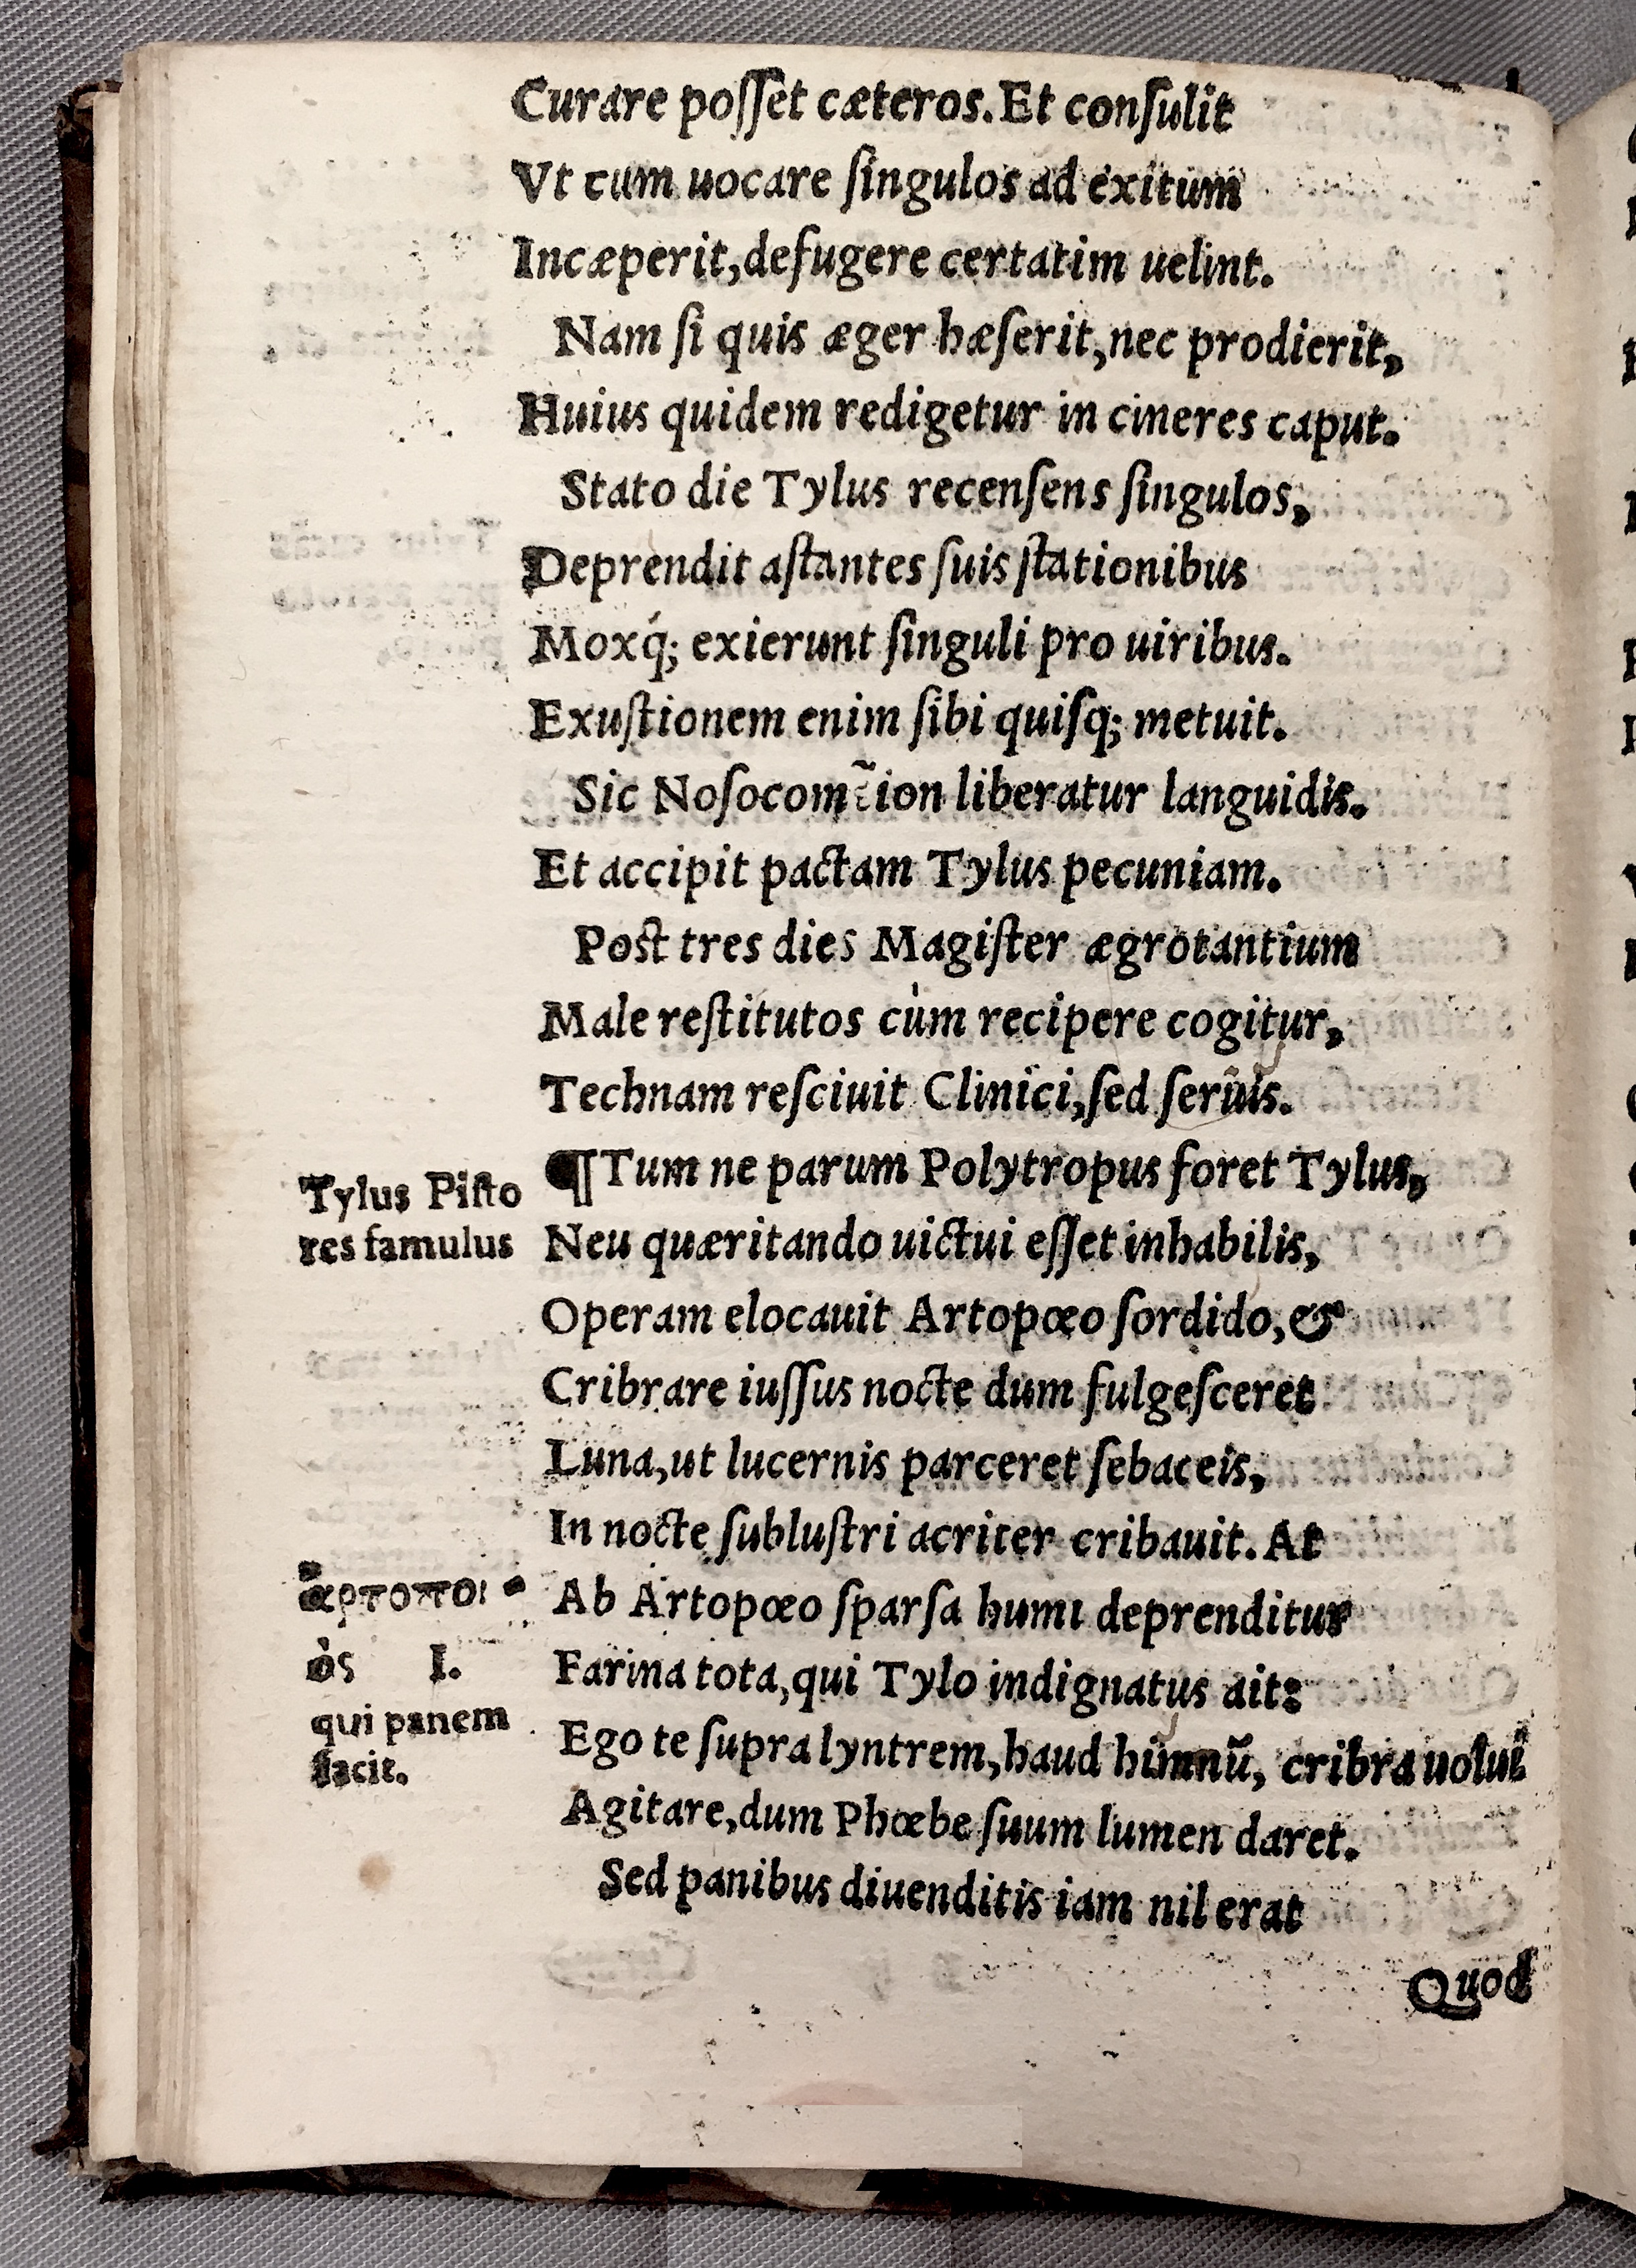 Curare poſſet cæteros. Et conſulit
Vt cum uocare ſingulos ad exitum
Incæperit, defugere certatim uelint.
Nam ſi quis æger hæſerit, nec prodierit,
Huius quidem redigetur in cineres caput.
Stato die Tylus recenſens ſingulos,
Deprendit aſtantes ſuis ſtationibus
Moxq́; exierunt ſinguli pro uiribus.
Exuſtionem enim ſibi quiſq; metuit.
Sic liberatur languidis.
Et accipit pactam Tylus pecuniam.
Poſt tres dies Magiſter ægrotantium
Male reſtitutos cùm recipere cogitur,
Technam reſciuit Clinici, ſed ſerùis.
¶ Tum ne parum Polytropus foret Tylus,
Neu quæritando uictui eſſet inhabilis,
Operam elocauit Artopœo ſordido, &
Cribrare iuſſus nocte dum fulgeſceret
Luna, ut lucernis parceret ſebaceis,
In nocte ſubluſtri acriter cribauit. At
Ab Artopœo ſparſa humi deprenditur
Farina tota, qui Tylo indignatus ait:
Ego te ſupra lyntrem, haud cribra uolui
Agitare, dum Phœbe ſuum lumen daret.
Sed panibus diuenditis iam nil erat
Quod
Tylus Piſto
res famulus
ἀρτοποι-
ὸς I.
qui panem
facit.